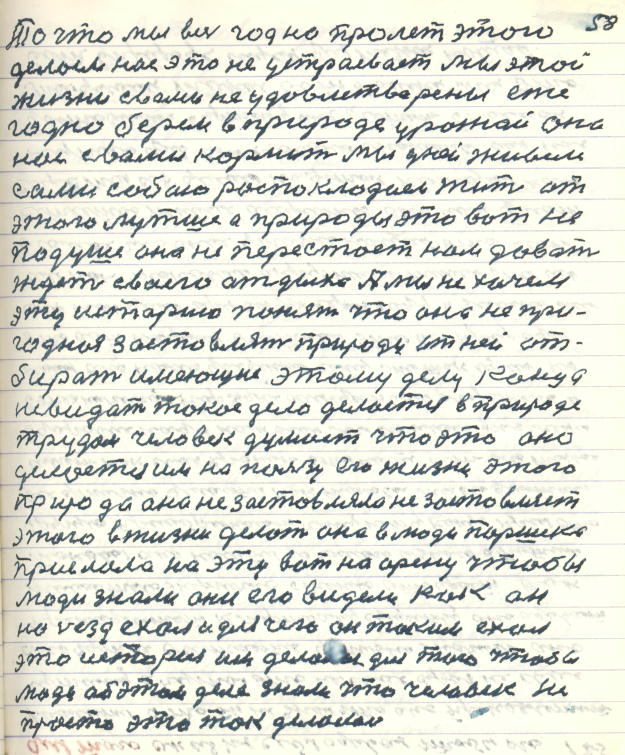 58
То что мы все годно пролет этого
делоем нас это не устраевает мы этой
жизни свами неудовлетварены еже
годно берем вприроде урожай она
нас свами кормит мы уней живем
сами собаю роспоклодаем жит от
этого лутше а природы это вот не
подуше она не перестоет нам доват
ждет своего отдыха А мы не хачем
эту историю понят что она не при-
годноя заставлят природу от ней от-
бират имеющие этому делу Кому
невидат токое дело делоется вприроде
трудом человек думает что это оно
делоется им на ползу его жизни этого
природа она не заставляла не заставляет
этого вжизни делот она влюди паршека
прислала на эту вот на арену чтобы
люди знали они его видели как он
на езд ехал и для чего он таким ехал
это история им делоеи для того чтобы
люде обэтом деле знали что человек не
просто это ток делоеем